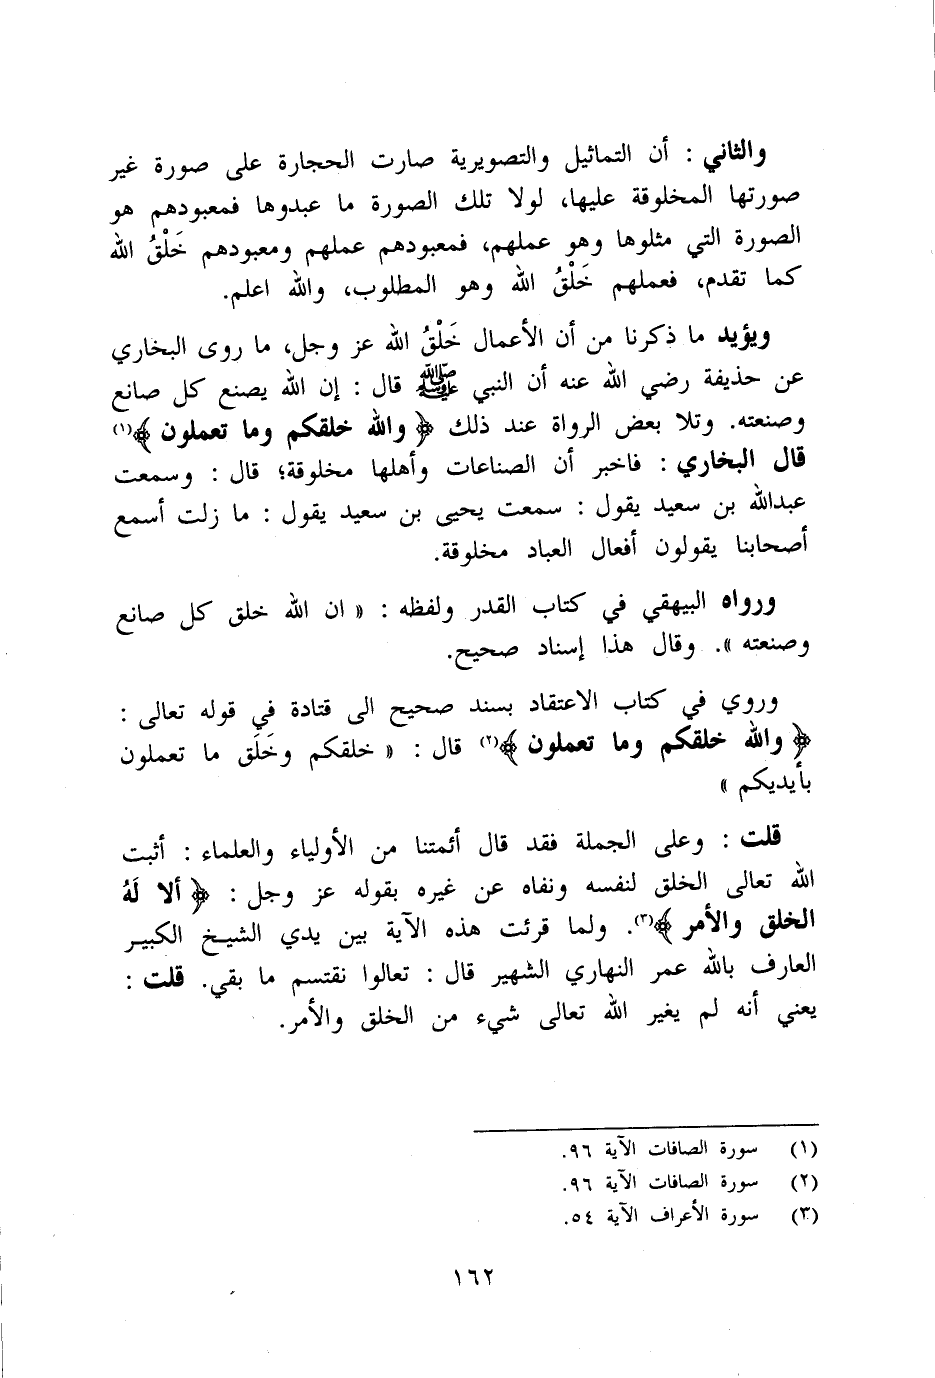 والثاني : أن التماثيل والتصويرية صارت الحجارة على صورة غير
صورتها المخلوقة عليها، لولا تلك الصورة ما عبدوها فمعبودهم هو
الصورة التي مثلوها وهو عملهم، فمعبودهم عملهم ومعبودهم خَلْقُ الله
كما تقدم، فعملهم خَلْقُ الله وهو المطلوب، والله اعلم.
ويؤيد ما ذكرنا من أن الأعمال خَلْقُ الله عز وجل، ما روى البخاري
عن حذيفة رضي الله عنه أن النبي ﷺ قال : إن الله يصنع كل صانع
وصنعته. وتلا بعض الرواة عند ذلك ﴿ والله خلقكم وما تعملون ﴾(١)
قال البخاري : فاخبر أن الصناعات وأهلها مخلوقة؛ قال : وسمعت
عبدالله بن سعيد يقول : سمعت يحيى بن سعيد يقول : ما زلت أسمع
أصحابنا يقولون أفعال العباد مخلوقة.
ورواه البيهقي في كتاب القدر ولفظه : « ان الله خلق كل صانع
وصنعته ». وقال هذا إسناد صحيح.
وروي في كتاب الاعتقاد بسند صحيح الى قتادة في قوله تعالى :
﴿ والله خلقكم وما تعملون ﴾(٢) قال : « خلقكم وخَلَق ما تعملون
بأيديكم »
قلت : وعلى الجملة فقد قال أئمتنا من الأولياء والعلماء : أثبت
الله تعالى الخلق لنفسه ونفاه عن غيره بقوله عز وجل : ﴿ ألا لَهُ
الخلق والأمر ﴾(٣). ولما قرئت هذه الآية بين يدي الشيخ الكبير
العارف بالله عمر النهاري الشهير قال : تعالوا نقتسم ما بقي. قلت :
يعني أنه لم يغير الله تعالى شيء من الخلق والأمر.
(١) سورة الصافات الآية ٩٦.
(٢) سورة الصافات الآية ٩٦.
(٣) سورة الأعراف الآية ٥٤.
١٦٢